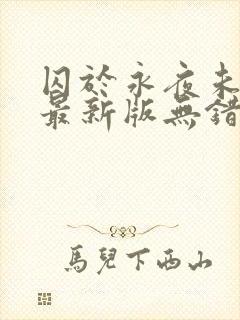 囚於永夜未
最新版無錯
馬兒下西山